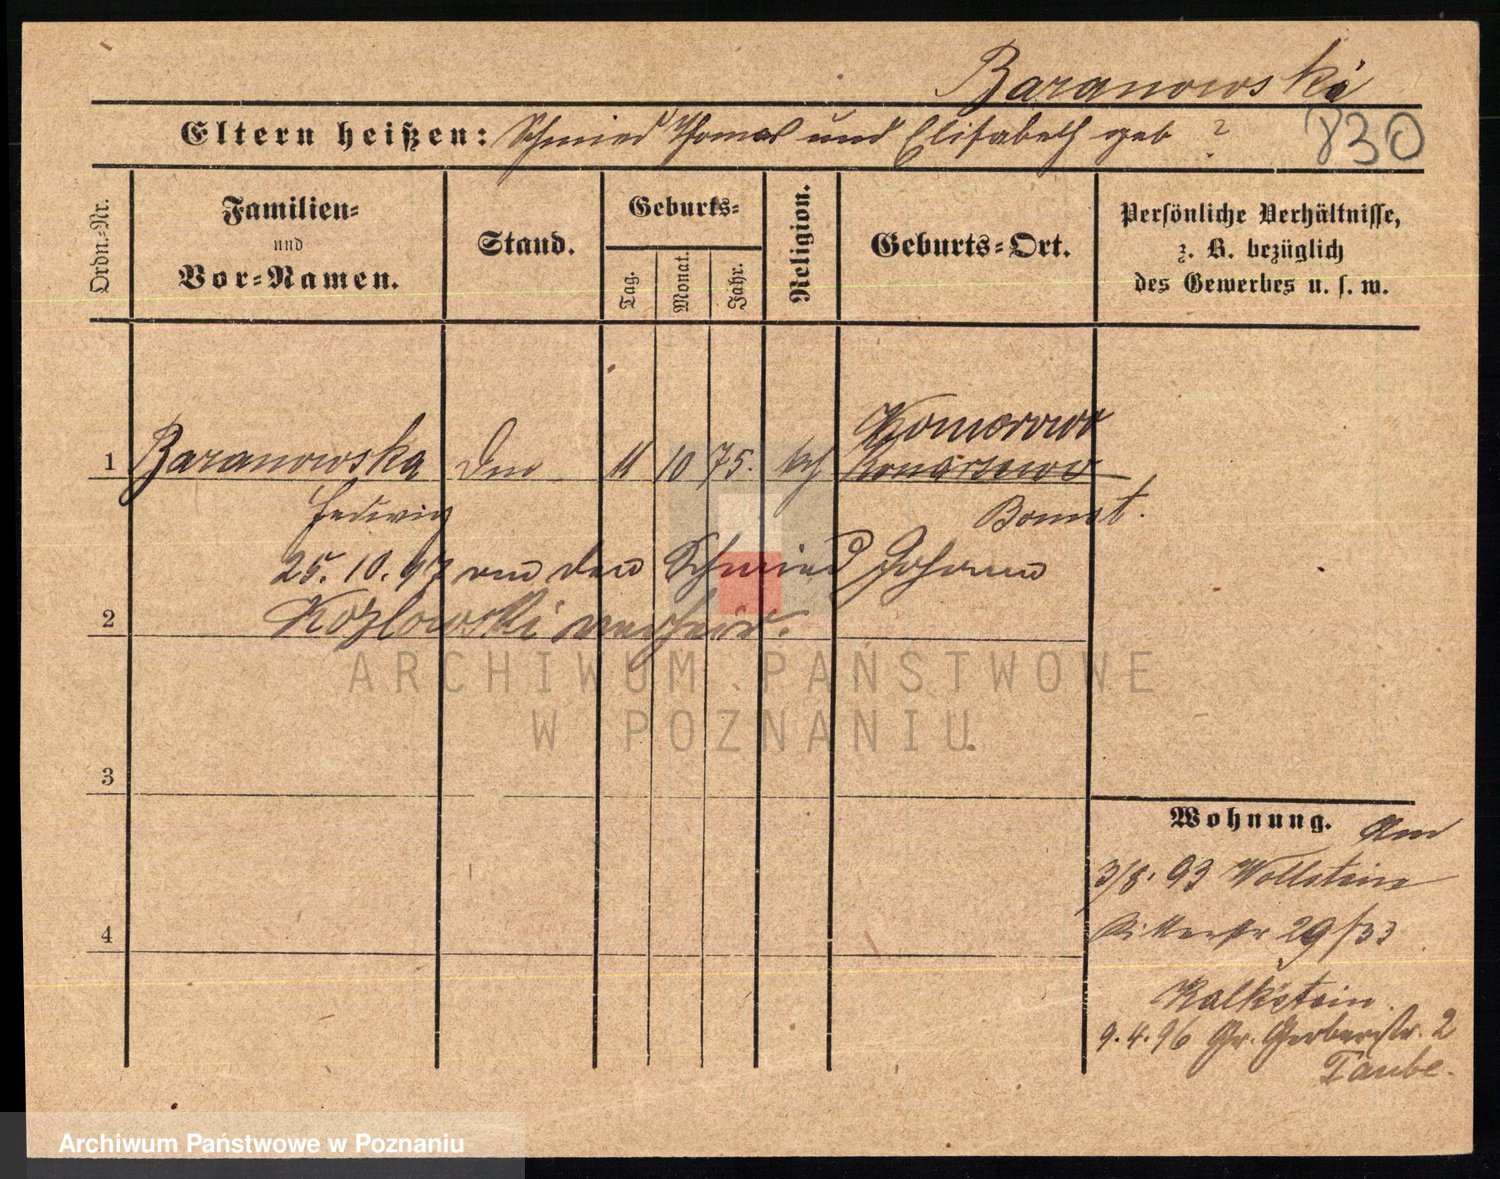 Baranowski
Eltern heißen: Schmied Thomas und Elisabeth geb ?
830
Ordn.-Nr.
Familien- und Vor-Namen.
Stand.
Geburts-
Tag.
Monat.
Jahr.
Religion.
Geburts-Ort.
Persönliche Verhältnisse,
z. B. bezüglich
des Gewerbes u. s. w.
Komorowo
1 Baranowska 11 10 75. kth Konarzewo
Hedwig Bomst.
25. 10. 97 den Schmied Johann
2 Kozlowski verheir.
ARCHIWUM PAŃSTWOWE
W POZNANIU
3
Wohnung.
3/8. 93 Wollstein
4 Ritterstr 29/33
Kalkstein.
9. 4. 96 Gr. Gerberstr. 2
Taube.
Archiwum Państwowe w Poznaniu